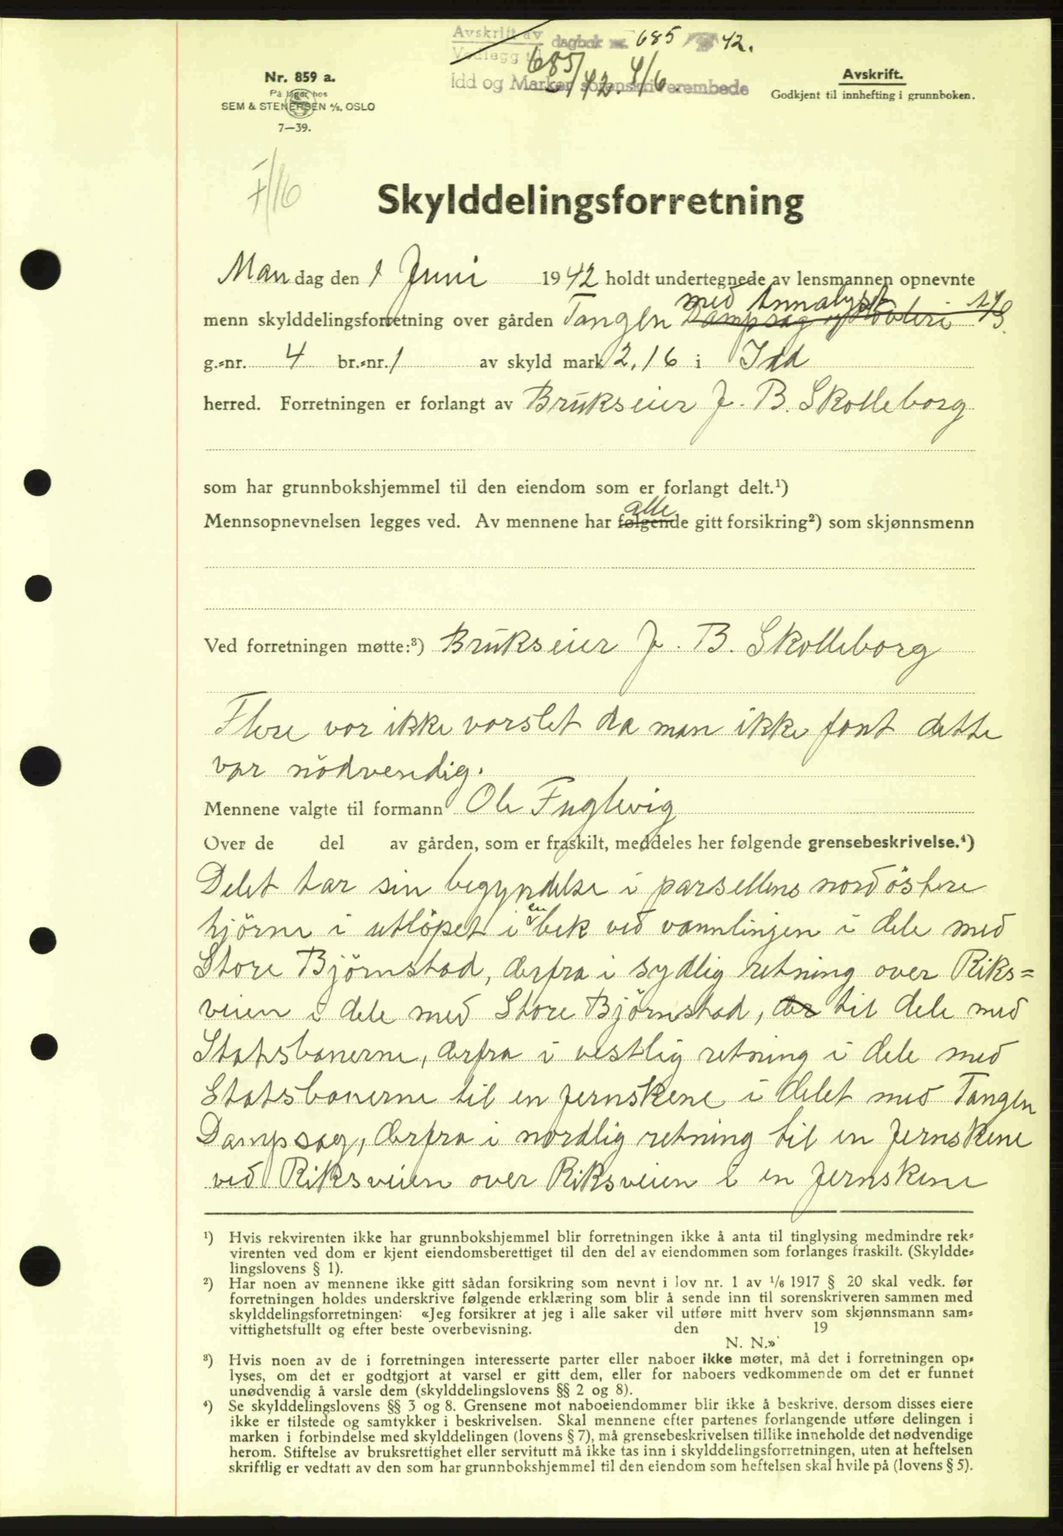 Avskrift av dagbok nr. 685 1942.
Vedlegg til 685/42. 4/6.
Idd og Marker sorenskriverembede
Nr. 859 a.
På lager hos
SEM & STENERSEN A/S, OSLO
7—39.
Avskrift.
Godkjent til innhefting i grunnboken.
F/16
Skylddelingsforretning
Mandag den 1 Juni 1942 holdt undertegnede av lensmannen opnevnte
med Annalyst
menn skylddelingsforretning over gården Tangen Dampsag og Høvleri
g.-nr. 4 br.-nr. 1 av skyld mark 2,16 i Idd
herred. Forretningen er forlangt av Brukseier J. B. Skolleborg
som har grunnbokshjemmel til den eiendom som er forlangt delt.¹)
alle
Mennsopnevnelsen legges ved. Av mennene har følgende gitt forsikring²) som skjønnsmenn
Ved forretningen møtte:³) Brukseier J. B. Skolleborg
Flere var ikke varslet da man ikke fant dette
var nödvendig.
Mennene valgte til formann Ole Fuglevig
Over de del av gården, som er fraskilt, meddeles her følgende grensebeskrivelse.⁴)
Delet tar sin begyndelse i parsellens nordöstere
hjörne i utlöpet i en bek ved vannlinjen i dele med
Store Björnstad, derfra i sydlig retning over Riks=
veien i dele med Store Björnstad, der til dele med
Statsbanerne, derfra i vestlig retning i dele med
Statsbanerne til en Jernskene i delet med Tangen
Dampsag, derfra i nordlig retning til en Jernskene
ved Riksveien over Riksveien i en Jernskene
¹) Hvis rekvirenten ikke har grunnbokshjemmel blir forretningen ikke å anta til tinglysing medmindre rek-
virenten ved dom er kjent eiendomsberettiget til den del av eiendommen som forlanges fraskilt. (Skyldde-
lingslovens § 1).
²) Har noen av mennene ikke gitt sådan forsikring som nevnt i lov nr. 1 av 1/6 1917 § 20 skal vedk. før
forretningen holdes underskrive følgende erklæring som blir å sende inn til sorenskriveren sammen med
skylddelingsforretningen: «Jeg forsikrer at jeg i alle saker vil utføre mitt hverv som skjønnsmann sam-
vittighetsfullt og efter beste overbevisning. den 19
N. N.»
³) Hvis noen av de i forretningen interesserte parter eller naboer ikke møter, må det i forretningen op-
lyses, om det er godtgjort at varsel er gitt dem, eller for naboers vedkommende om det er funnet
unødvendig å varsle dem (skylddelingslovens §§ 2 og 8).
⁴) Se skylddelingslovens §§ 3 og 8. Grensene mot naboeiendommer blir ikke å beskrive, dersom disses eiere
ikke er tilstede og samtykker i beskrivelsen. Skal mennene efter partenes forlangende utføre delingen i
marken i forbindelse med skylddelingen (lovens § 7), må grensebeskrivelsen tillike inneholde det nødvendige
herom. Stiftelse av bruksrettighet eller servitutt må ikke tas inn i skylddelingsforretningen, uten at heftelsen
skriftlig er vedtatt av den som har grunnbokshjemmel til den eiendom som heftelsen skal hvile på (lovens § 5).